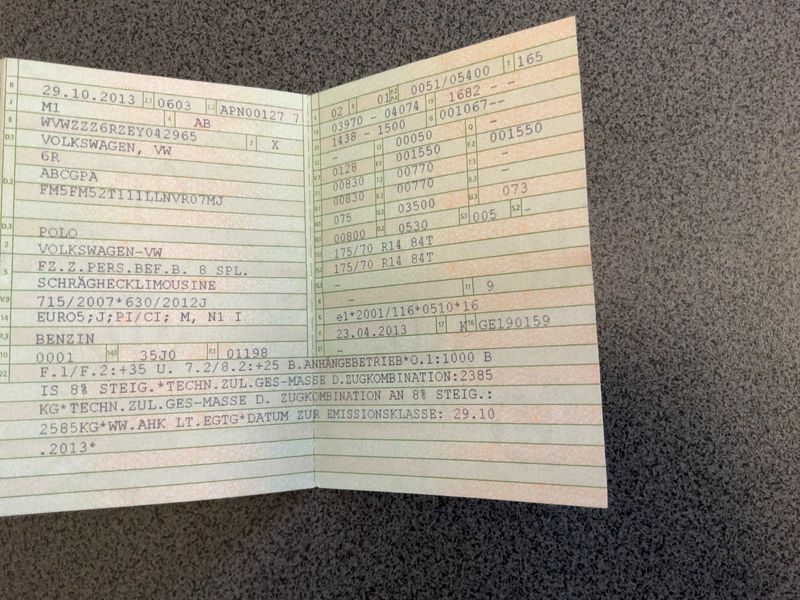 B 29.10.2013 2.1 0603 2.2 APN00127 7
J M1 4 AB
E WVWZZZ6RZEY042965 3 X
D.1 VOLKSWAGEN, VW
6R
D.2 ABCGPA
FM5FM52T111LLNVR07MJ
D.3 POLO
2 VOLKSWAGEN-VW
5 FZ.Z.PERS.BEF.B. 8 SPL.
SCHRÄGHECKLIMOUSINE
V.9 715/2007*630/2012J
14 EURO5;J;PI/CI; M, N1 I
P.3 BENZIN
10 0001 14.1 35J0 P.1 01198
L 02 9 01 P.2 0051/05400 T 165
18 03970 - 04074 19 1682 - -
20 1438 - 1500 G 001067--
12 - 13 00050 Q -
V.7 0128 F.1 001550 F.2 001550
7.1 00830 7.2 00770 7.3 -
8.1 00830 8.2 00770 8.3 -
U.1 075 U.2 03500 U.3 073
O.1 00800 O.2 0530 S.1 005 S.2 -
15.1 175/70 R14 84T
15.2 175/70 R14 84T
15.3 -
R - 11 9
K e1*2001/116*0510*16
6 23.04.2013 17 K 16 GE190159
21 -
22 F.1/F.2:+35 U. 7.2/8.2:+25 B.ANHÄNGEBETRIEB*O.1:1000 B
IS 8% STEIG.*TECHN.ZUL.GES-MASSE D.ZUGKOMBINATION:2385
KG*TECHN.ZUL.GES-MASSE D. ZUGKOMBINATION AN 8% STEIG.:
2585KG*WW.AHK LT.EGTG*DATUM ZUR EMISSIONSKLASSE: 29.10
.2013*